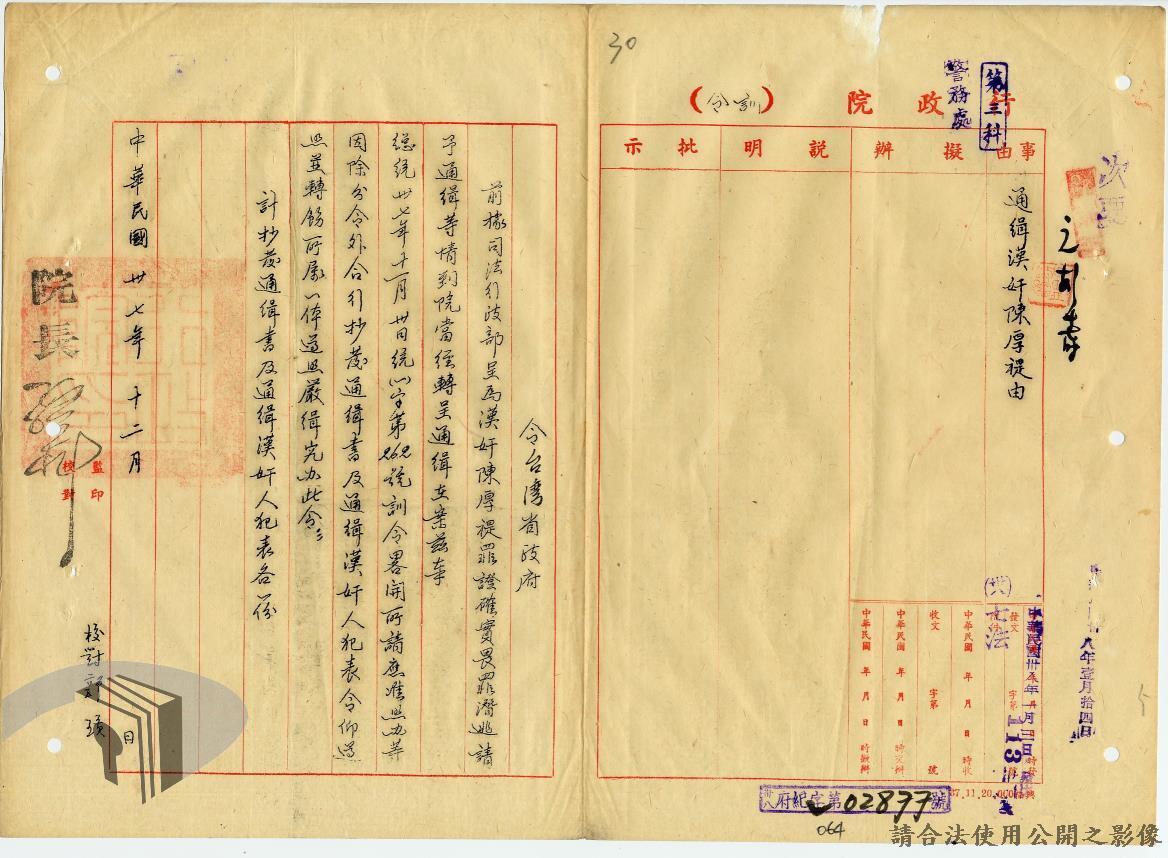 30
行政院(訓令)
第三科
警務處
次要
事由
擬辦
說明
批示
通緝漢奸陳厚禔由
卅八年壹月拾四日
七法
113
發文
字第
中華民國 年 月 日 時收
收文 字第 號
中華民國 年 月 日 時交辦
中華民國 年 月 日 時擬辦
37.11.20.000
卅八府紀字第02877號
064
令台灣省政府
前據司法行政部呈為漢奸陳厚禔罪證確實畏罪潛逃請
予通緝等情到院當經轉呈通緝在案茲奉
總統卅七年十一月卅日統(一)字第262號訓令畧開所請應准照办等
因除分令外合行抄發通緝書及通緝漢奸人犯表令仰遵
照並轉飭所屬一体遵照嚴緝究办此令
計抄發通緝書及通緝漢奸人犯表各份
中華民國卅七年十二月 日
院長
監印
校對
校對
請合法使用公開之影像